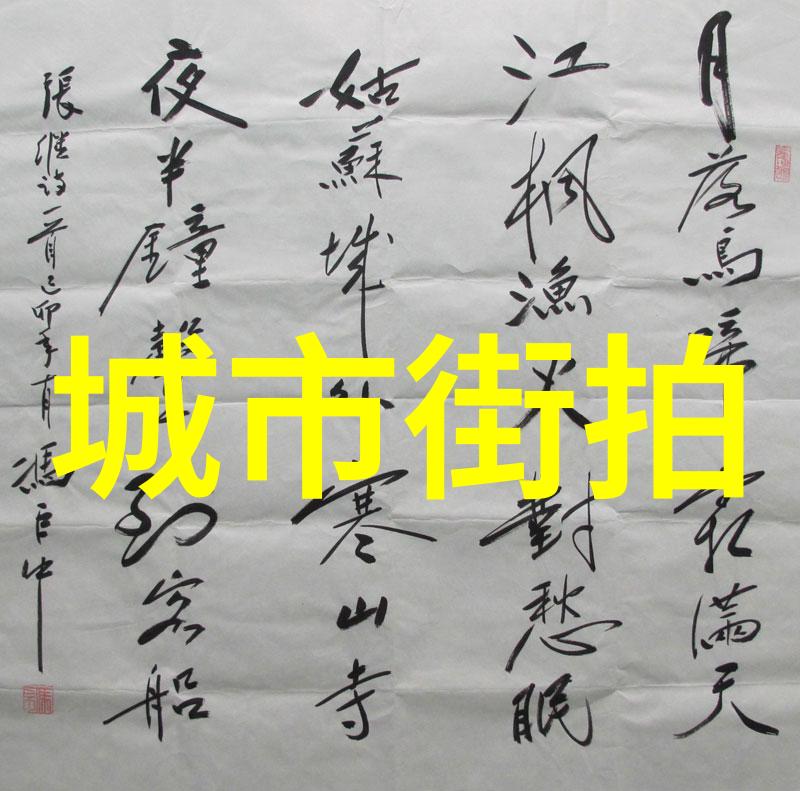 月落烏啼霜滿天
江楓漁火對愁眠
姑蘇城外寒山寺
夜半鐘聲到客船
張继诗一首己卯年
城市街拍